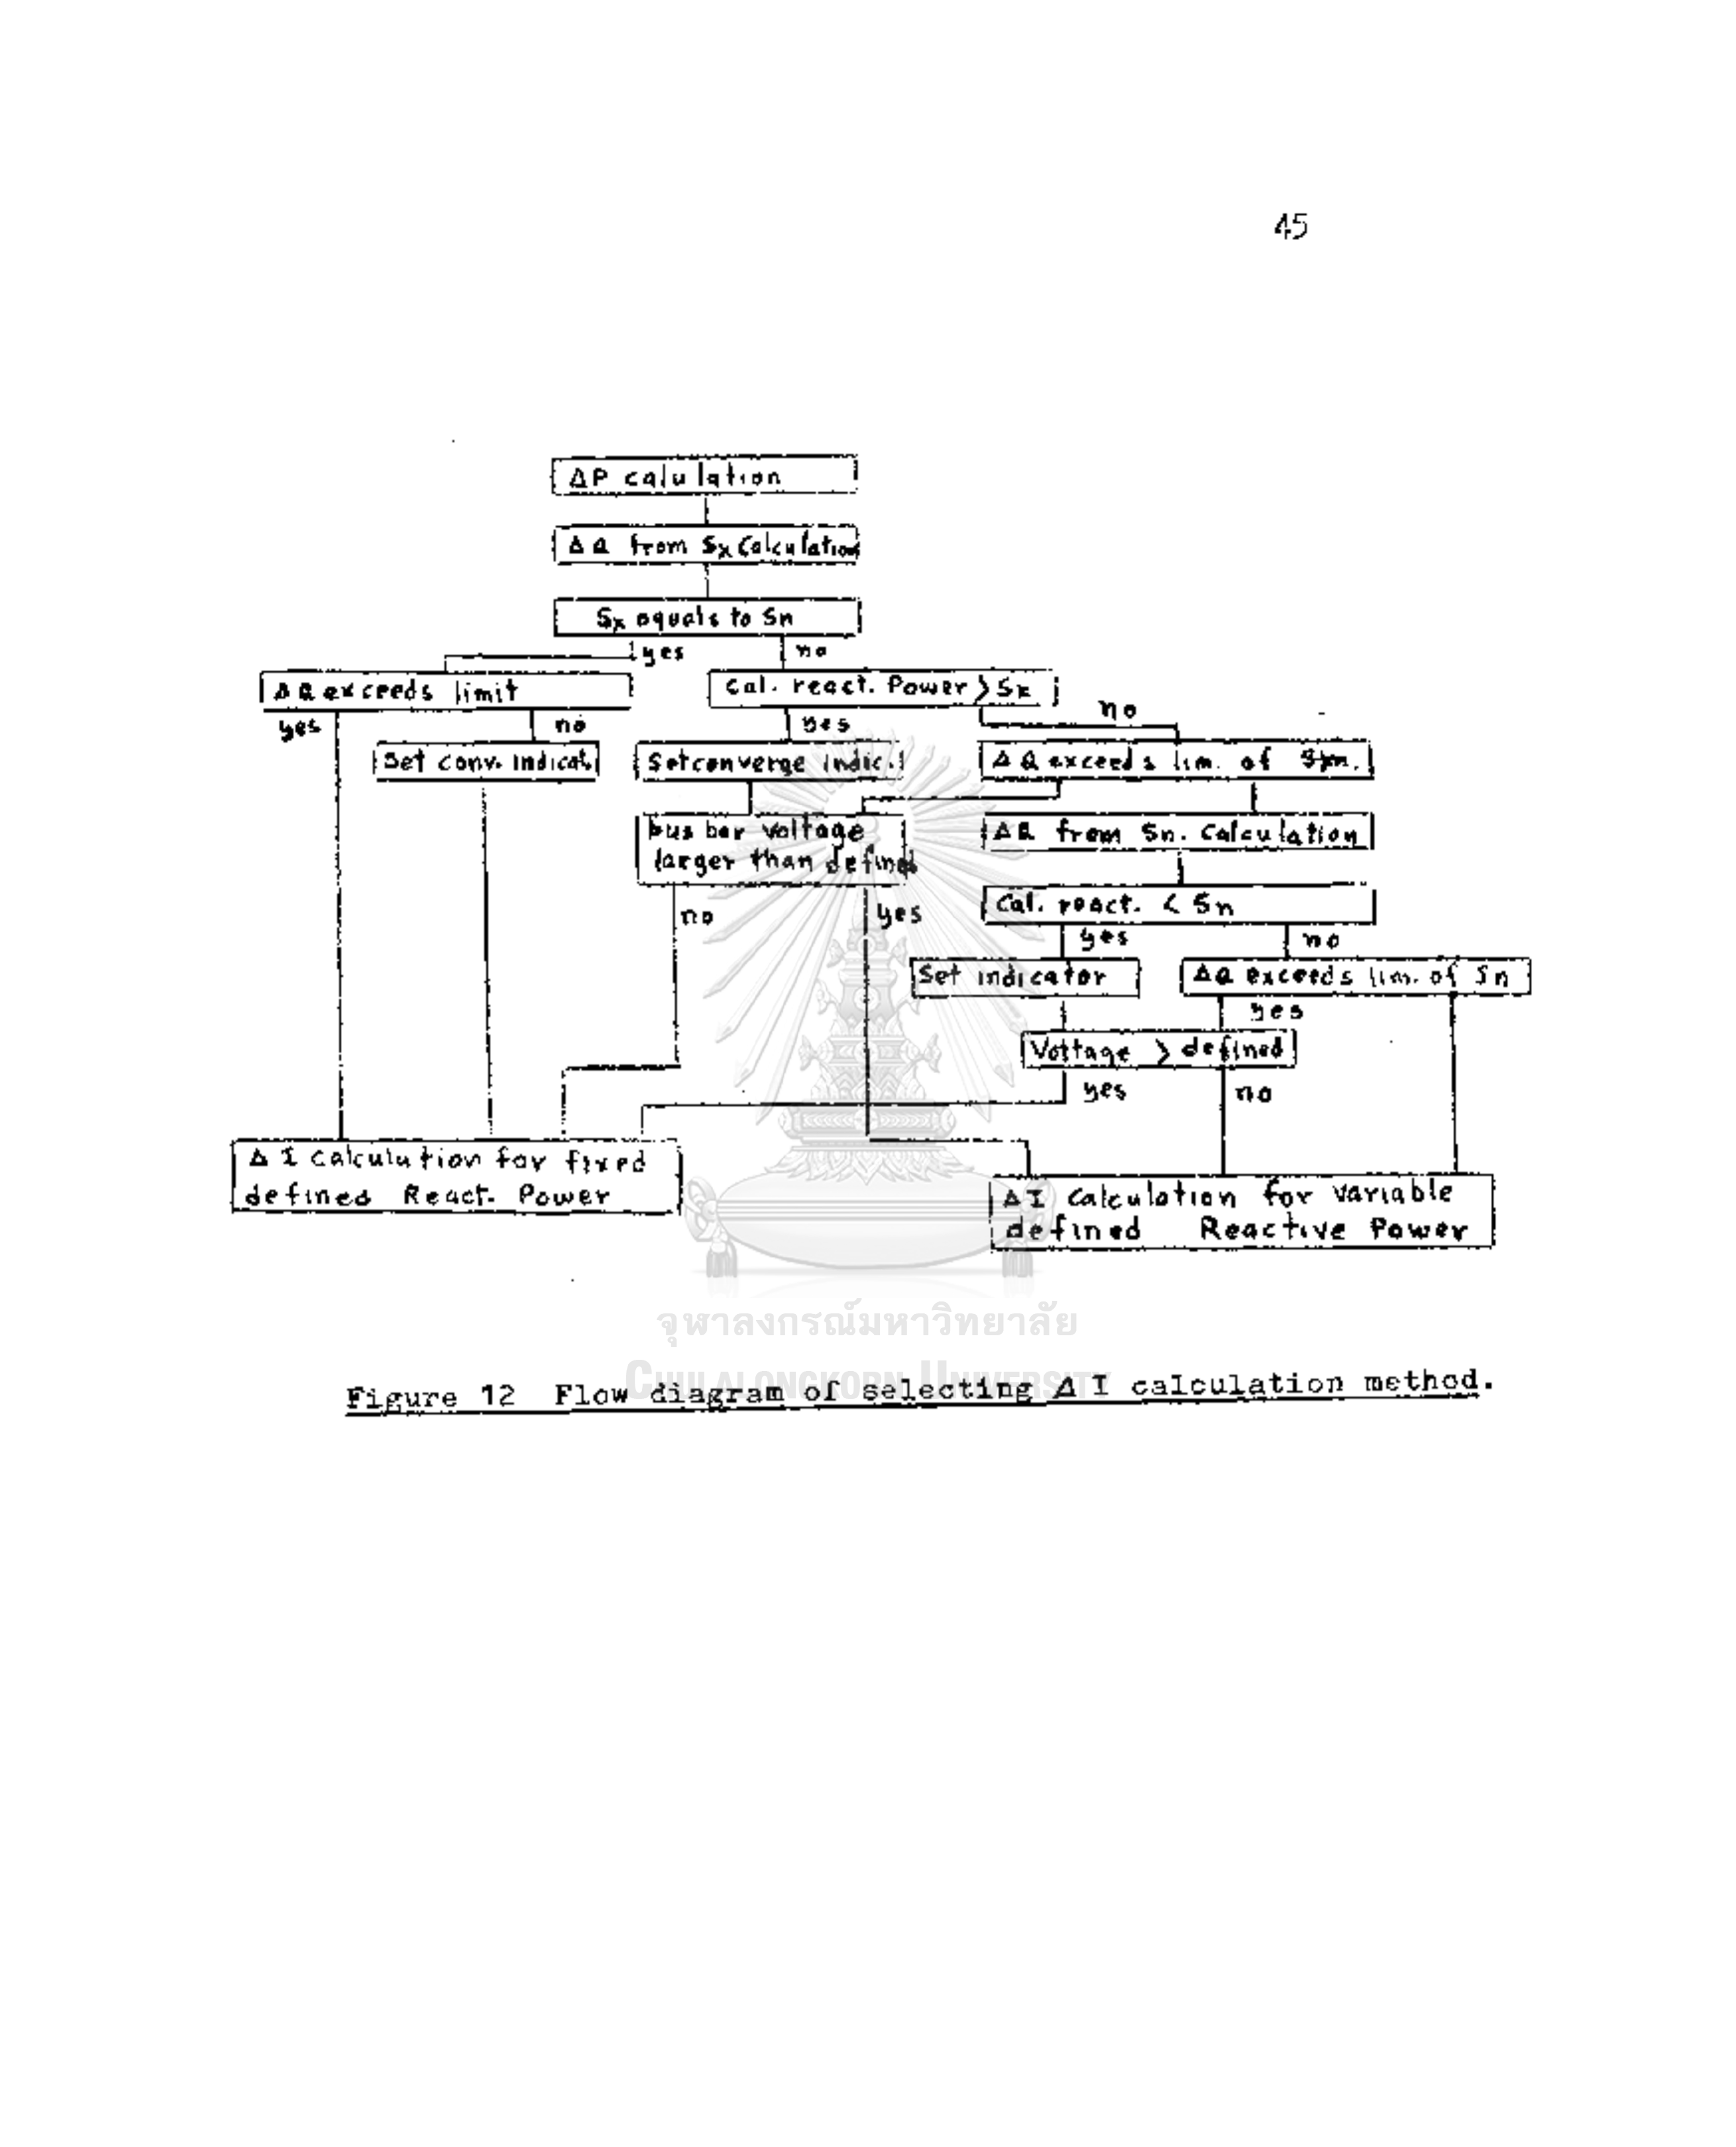 45
ΔP calulation
ΔQ from Sx Calculation
Sx equals to Sn
yes no
ΔQ exceeds limit
Cal. react. Power > Sx
yes no yes no
Set conv. indicat.
Setconverge indic.
ΔQ exceeds lim. of
bus bar voltage
larger than defined
ΔQ from Sn. Calculation
Cal. react. < Sn
no yes
yes no
Set indicator
ΔQ exceeds lim. of Sn
yes
Voltage > defined
yes no
ΔI calculation for fixed
defined React. Power
ΔI Calculation for variable
defined Reactive Power
จุฬาลงกรณ์มหาวิทยาลัย
CHULALONGKORN UNIVERSITY
Figure 12 Flow diagram of selecting Δ I calculation method.